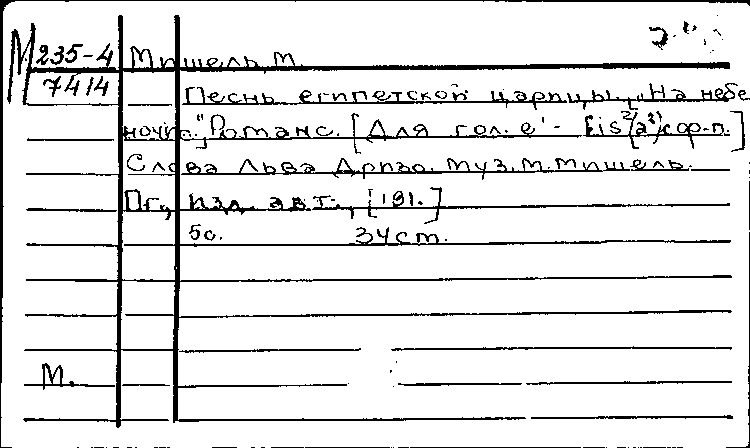 М 235-4 Мишель, М.
7414
Песнь египетской царицы. "На небе
ночь." Романс. [Для гол. e' - fis²(a²) с ф-п.]
Слова Льва Дризо. Муз. М. Мишель.
Пг., Изд. авт., [191.]
5с. 34 см.
М.